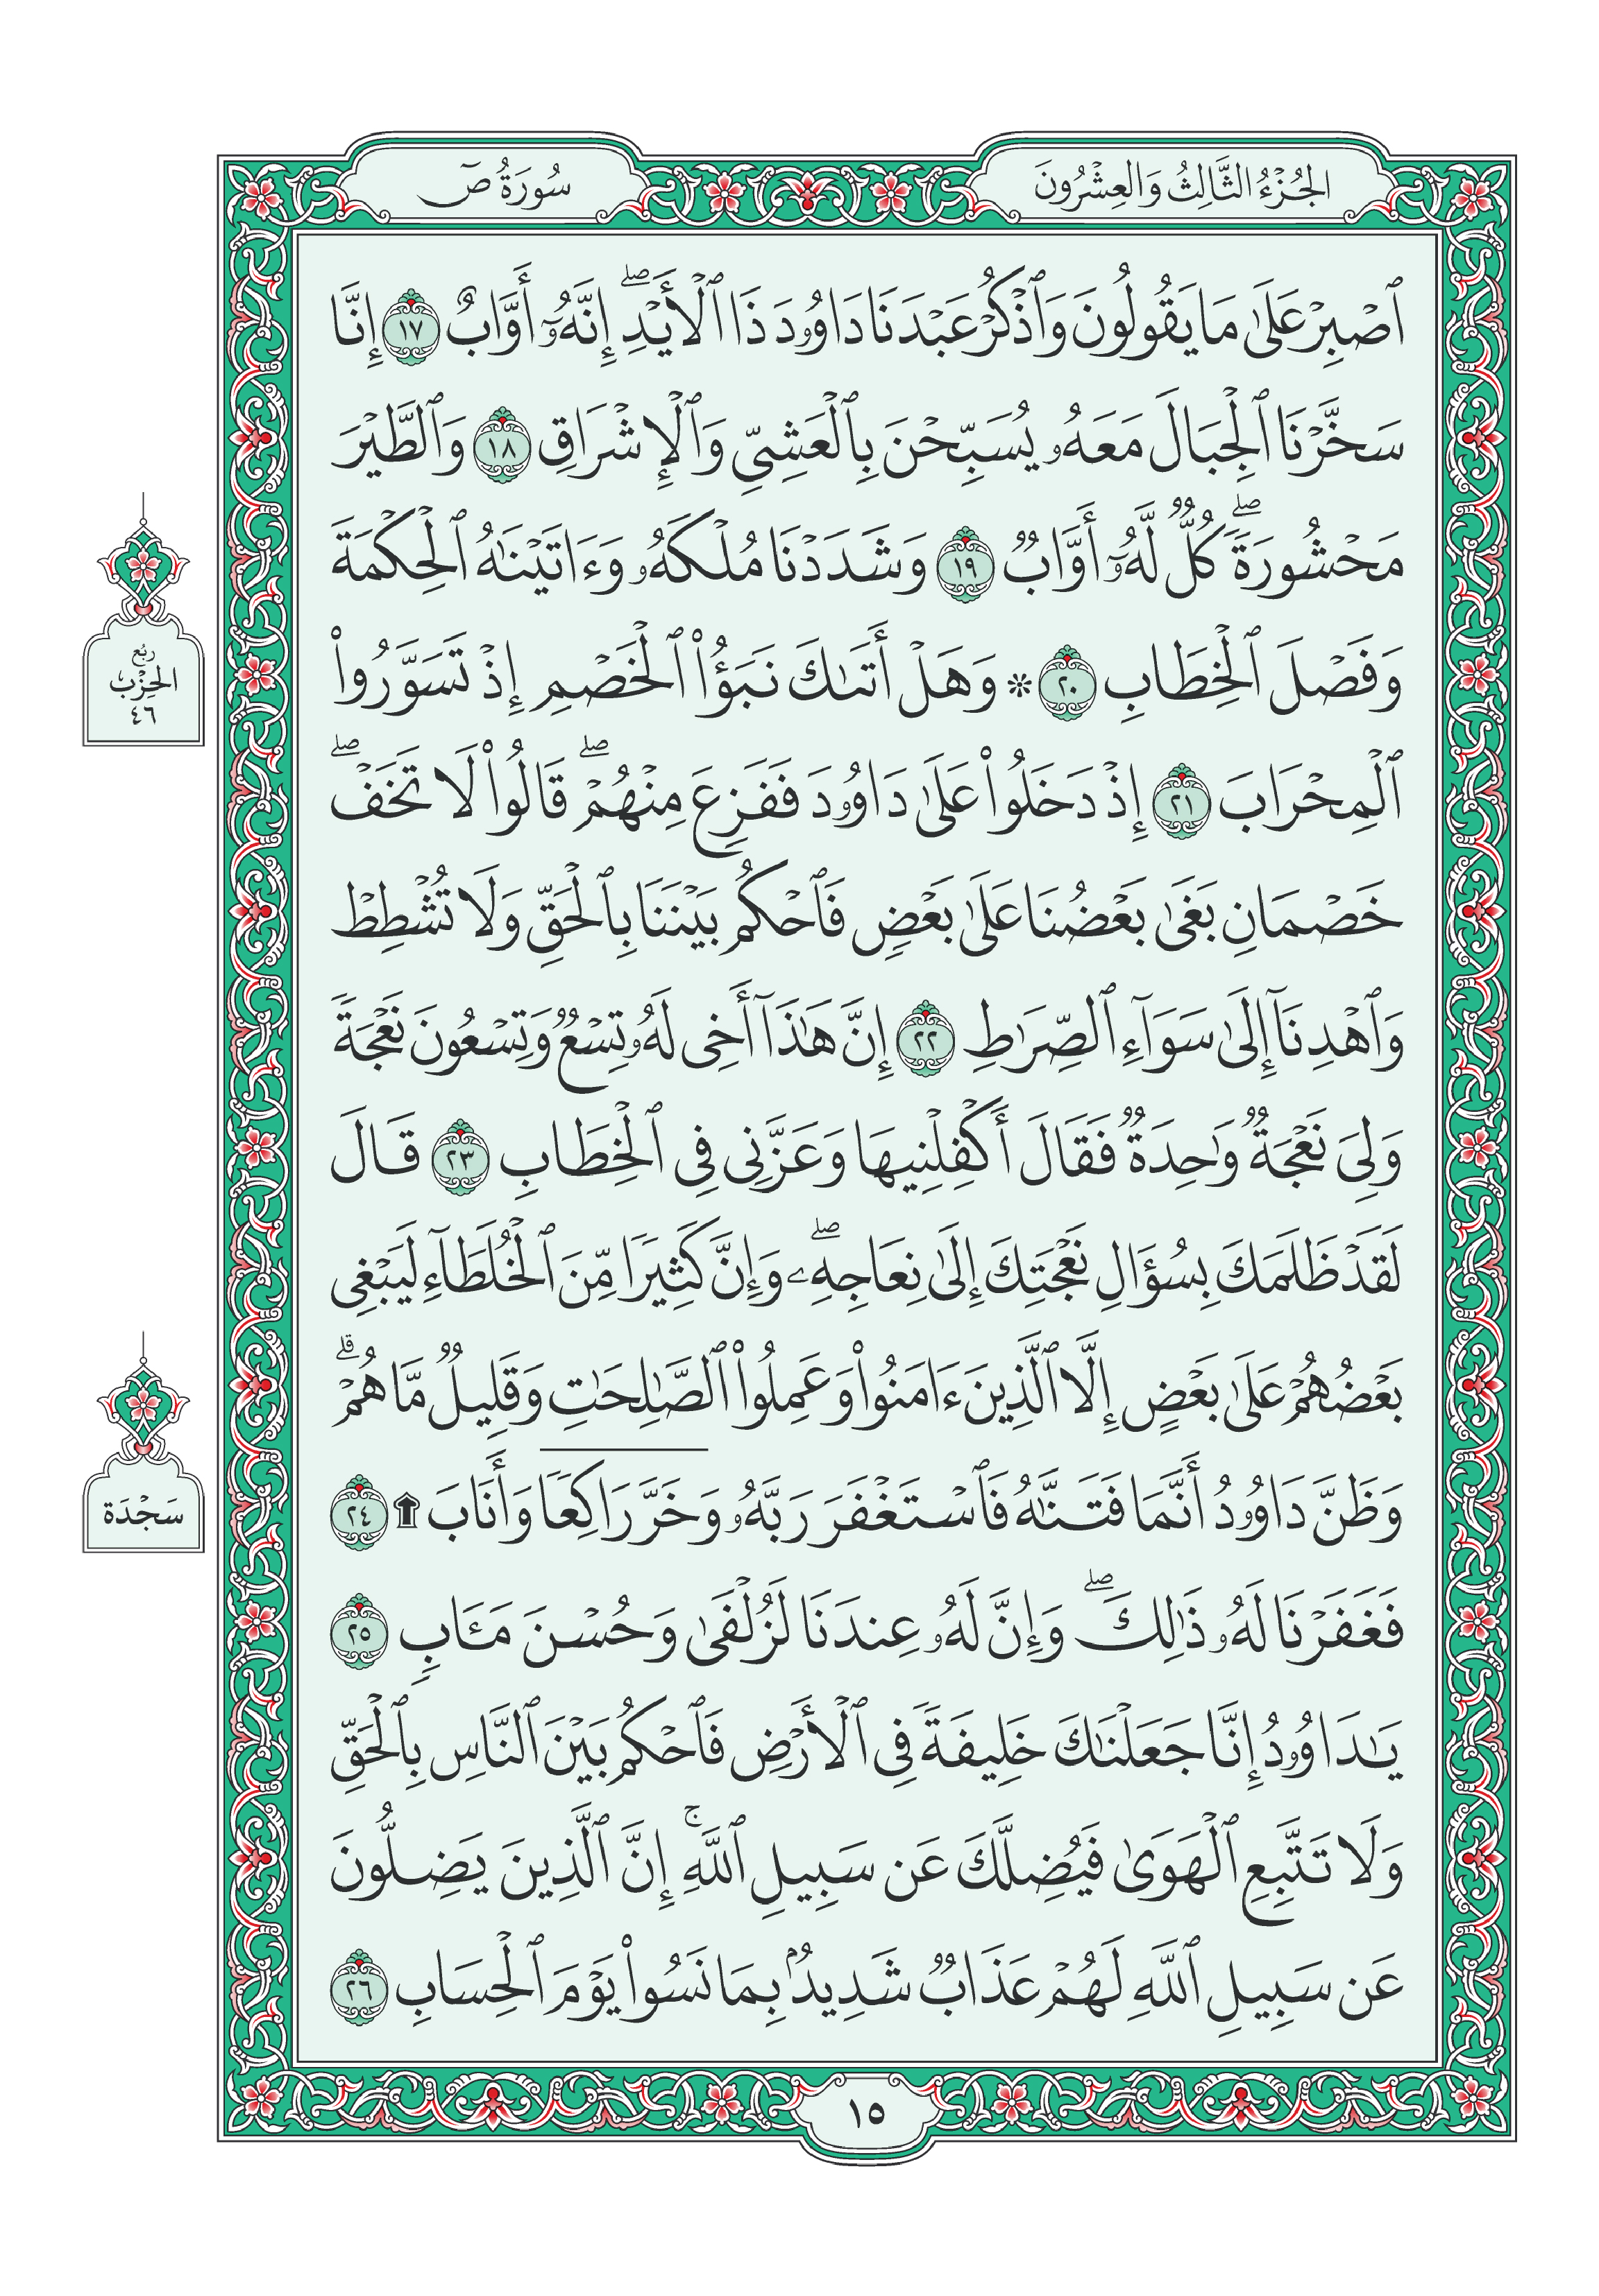 الجُزْءُ الثَّالِثُ وَالعِشْرُونَ
سُورَةُ صٓ
ٱصۡبِرۡ عَلَىٰ مَا يَقُولُونَ وَٱذۡكُرۡ عَبۡدَنَا دَاوُۥدَ ذَا ٱلۡأَيۡدِۖ إِنَّهُۥٓ أَوَّابٌ ١٧ إِنَّا
سَخَّرۡنَا ٱلۡجِبَالَ مَعَهُۥ يُسَبِّحۡنَ بِٱلۡعَشِيِّ وَٱلۡإِشۡرَاقِ ١٨ وَٱلطَّيۡرَ
مَحۡشُورَةٗۖ كُلّٞ لَّهُۥٓ أَوَّابٞ ١٩ وَشَدَدۡنَا مُلۡكَهُۥ وَءَاتَيۡنَٰهُ ٱلۡحِكۡمَةَ
وَفَصۡلَ ٱلۡخِطَابِ ٢٠ ۞ وَهَلۡ أَتَىٰكَ نَبَؤُاْ ٱلۡخَصۡمِ إِذۡ تَسَوَّرُواْ
ٱلۡمِحۡرَابَ ٢١ إِذۡ دَخَلُواْ عَلَىٰ دَاوُۥدَ فَفَزِعَ مِنۡهُمۡۖ قَالُواْ لَا تَخَفۡۖ
خَصۡمَانِ بَغَىٰ بَعۡضُنَا عَلَىٰ بَعۡضٖ فَٱحۡكُم بَيۡنَنَا بِٱلۡحَقِّ وَلَا تُشۡطِطۡ
وَٱهۡدِنَآ إِلَىٰ سَوَآءِ ٱلصِّرَٰطِ ٢٢ إِنَّ هَٰذَآ أَخِي لَهُۥ تِسۡعٞ وَتِسۡعُونَ نَعۡجَةٗ
وَلِيَ نَعۡجَةٞ وَٰحِدَةٞ فَقَالَ أَكۡفِلۡنِيهَا وَعَزَّنِي فِي ٱلۡخِطَابِ ٢٣ قَالَ
لَقَدۡ ظَلَمَكَ بِسُؤَالِ نَعۡجَتِكَ إِلَىٰ نِعَاجِهِۦۖ وَإِنَّ كَثِيرٗا مِّنَ ٱلۡخُلَطَآءِ لَيَبۡغِي
بَعۡضُهُمۡ عَلَىٰ بَعۡضٍ إِلَّا ٱلَّذِينَ ءَامَنُواْ وَعَمِلُواْ ٱلصَّٰلِحَٰتِ وَقَلِيلٞ مَّا هُمۡۗ
وَظَنَّ دَاوُۥدُ أَنَّمَا فَتَنَّٰهُ فَٱسۡتَغۡفَرَ رَبَّهُۥ وَخَرَّۤ رَاكِعٗاۤ وَأَنَابَ ۩ ٢٤
فَغَفَرۡنَا لَهُۥ ذَٰلِكَۖ وَإِنَّ لَهُۥ عِندَنَا لَزُلۡفَىٰ وَحُسۡنَ مَـَٔابٖ ٢٥
يَٰدَاوُۥدُ إِنَّا جَعَلۡنَٰكَ خَلِيفَةٗ فِي ٱلۡأَرۡضِ فَٱحۡكُم بَيۡنَ ٱلنَّاسِ بِٱلۡحَقِّ
وَلَا تَتَّبِعِ ٱلۡهَوَىٰ فَيُضِلَّكَ عَن سَبِيلِ ٱللَّهِۚ إِنَّ ٱلَّذِينَ يَضِلُّونَ
عَن سَبِيلِ ٱللَّهِ لَهُمۡ عَذَابٞ شَدِيدُۢ بِمَا نَسُواْ يَوۡمَ ٱلۡحِسَابِ ٢٦
رُبُع
الحِزْب
٤٦
سَجْدَة
١٥